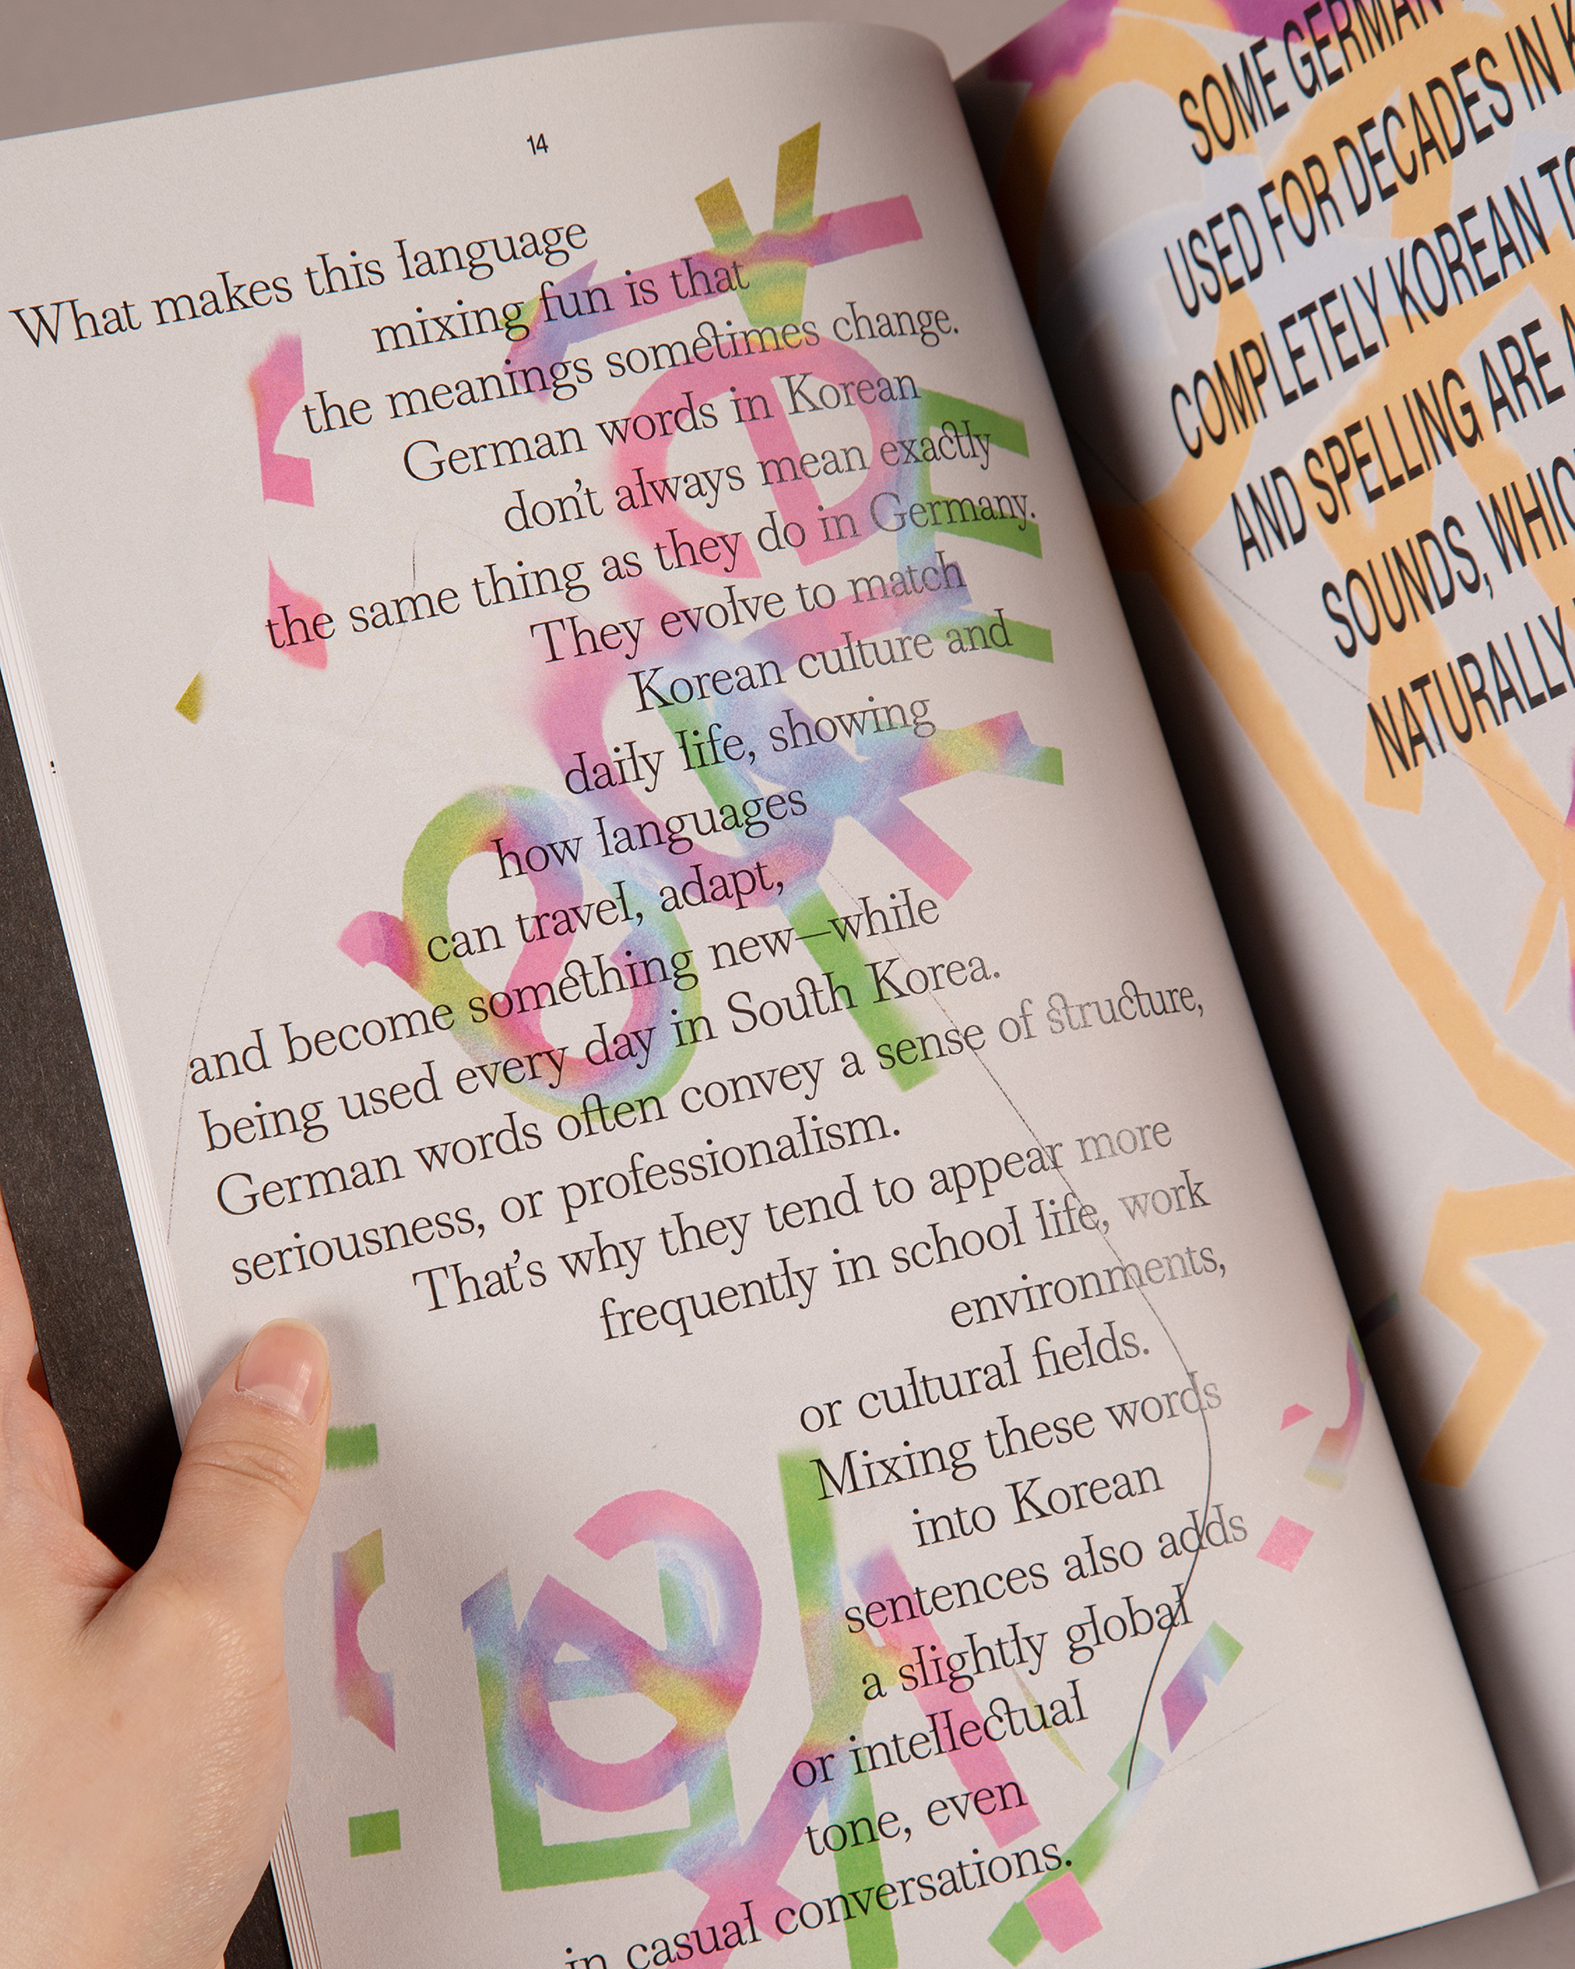 14
What makes this language
mixing fun is that
the meanings sometimes change.
German words in Korean
don't always mean exactly
the same thing as they do in Germany.
They evolve to match
Korean culture and
daily life, showing
how languages
can travel, adapt,
and become something new—while
being used every day in South Korea.
German words often convey a sense of structure,
seriousness, or professionalism.
That's why they tend to appear more
frequently in school life, work
environments,
or cultural fields.
Mixing these words
into Korean
sentences also adds
a slightly global
or intellectual
tone, even
in casual conversations.
SOME GERMAN
USED FOR DECADES IN
COMPLETELY KOREAN
AND SPELLING ARE
SOUNDS,
NATURALLY